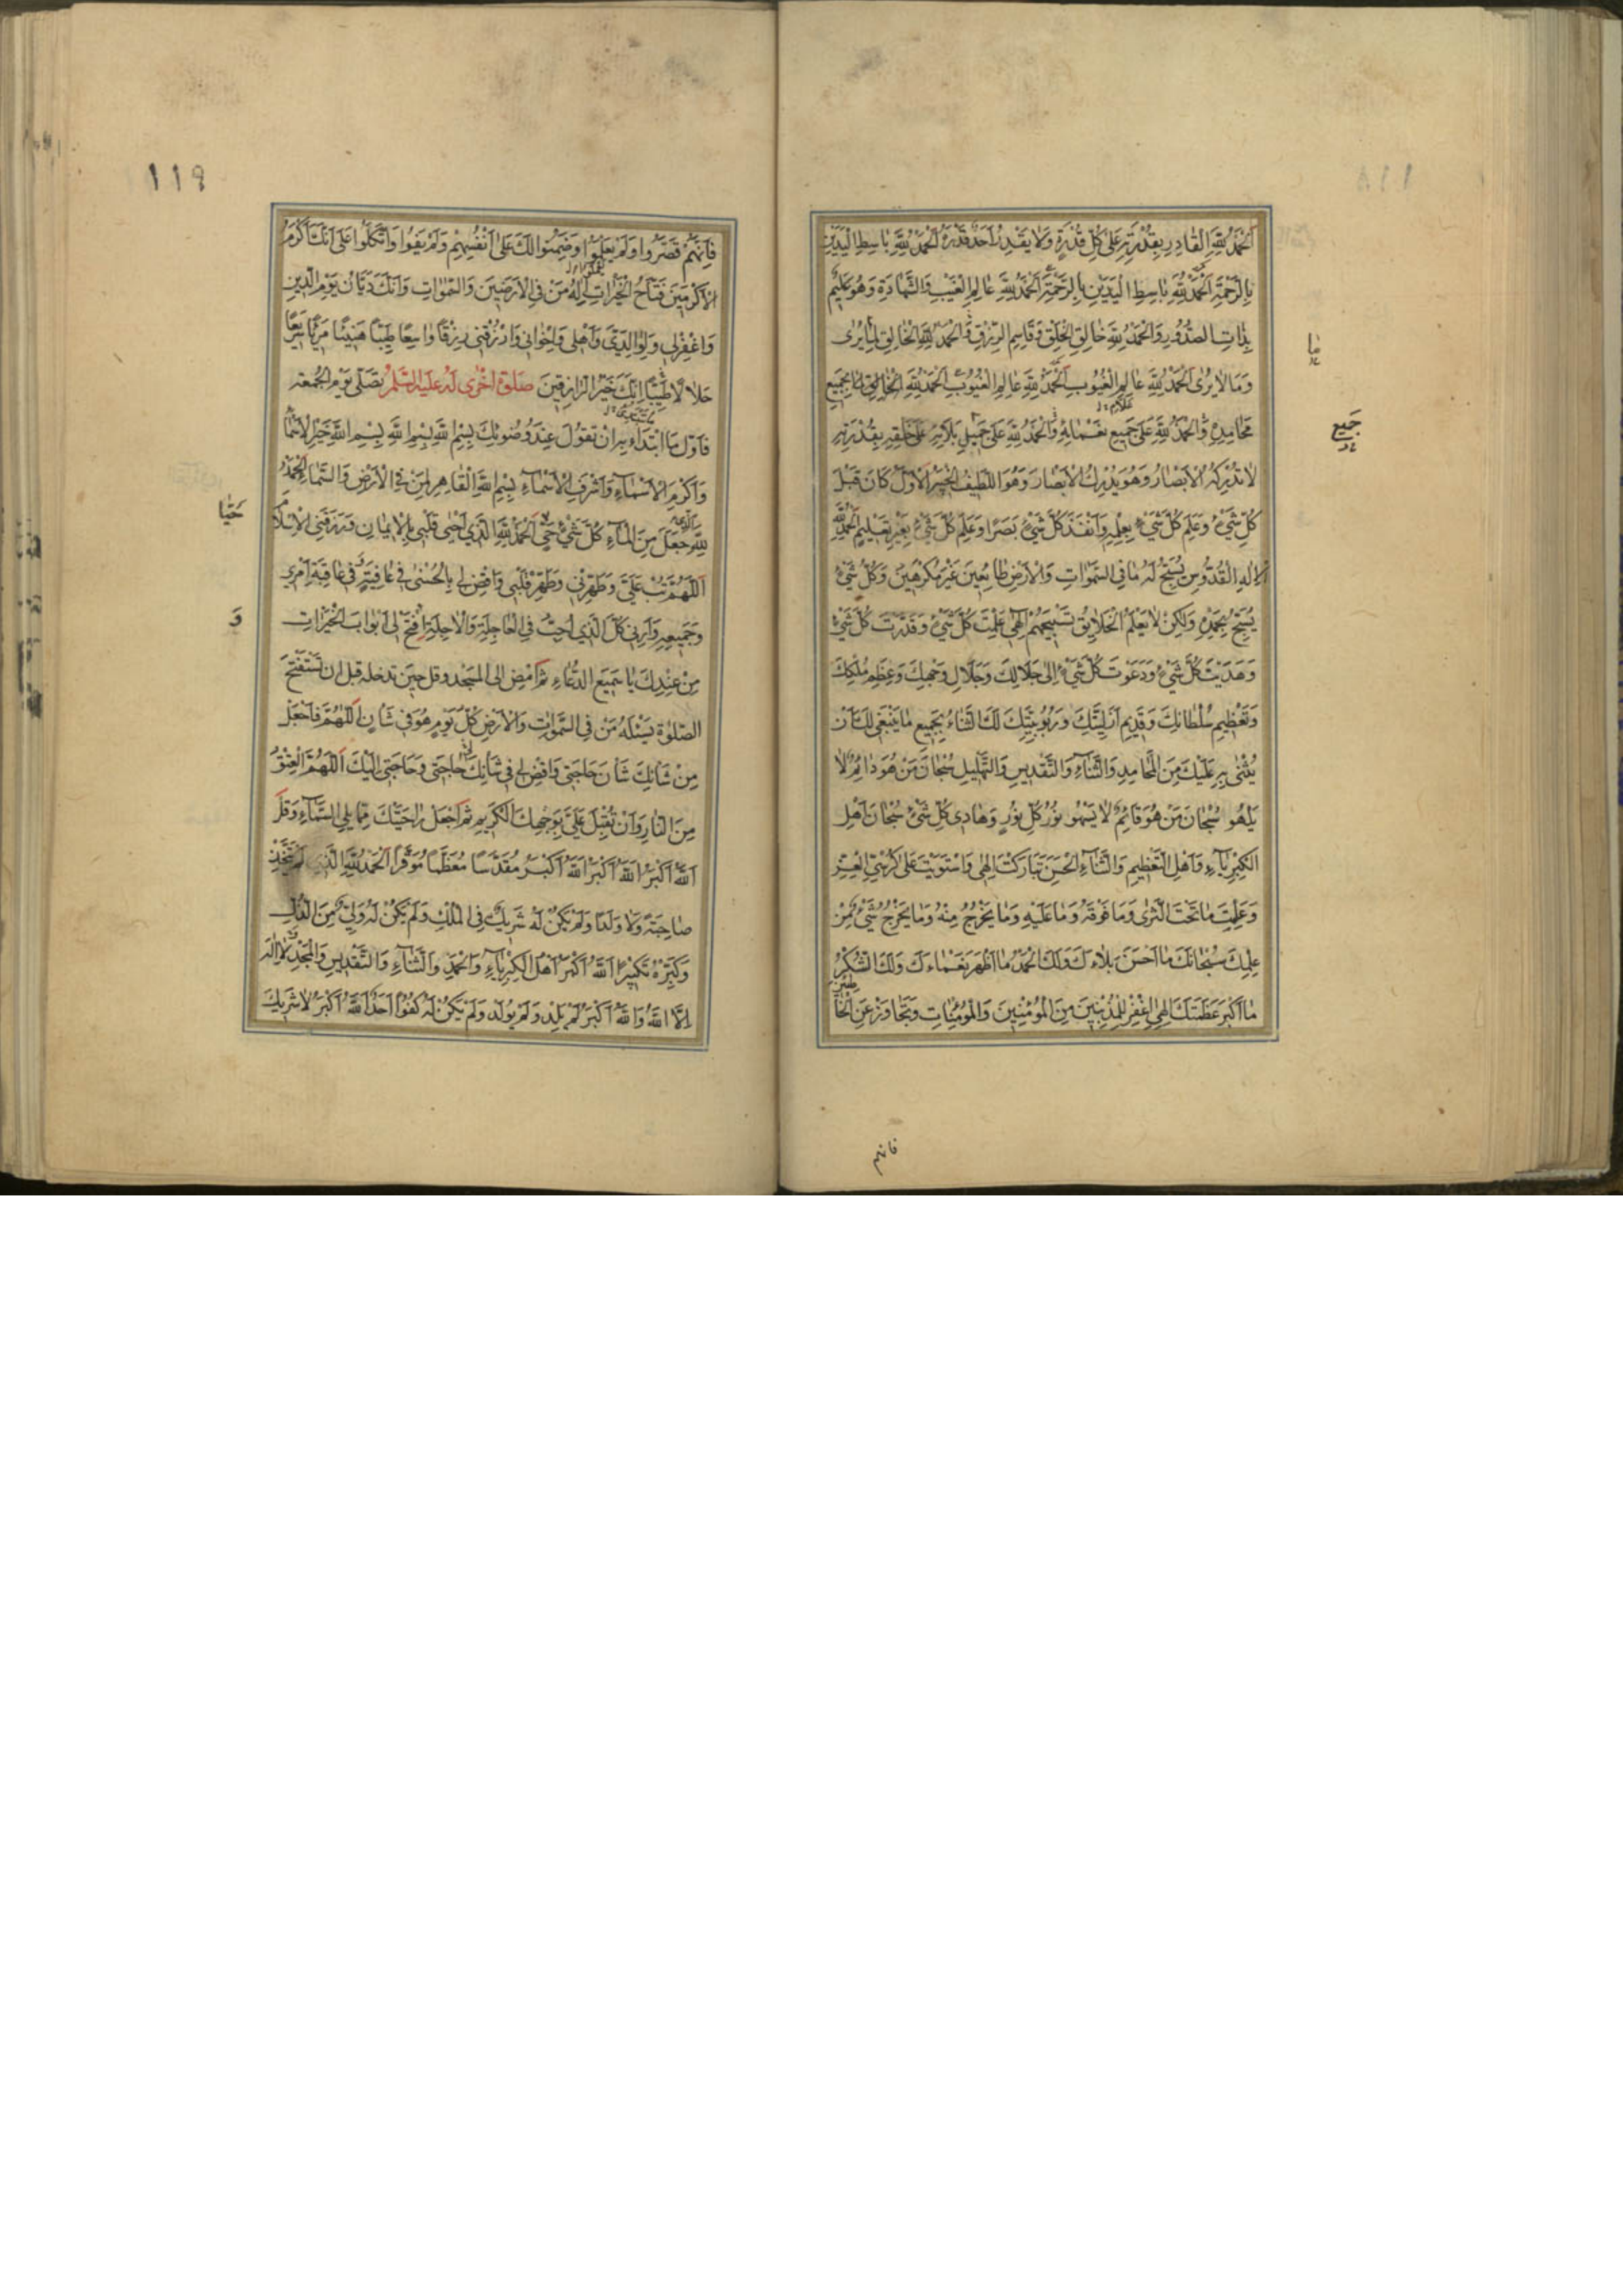 اَلْحَمْدُ لِلّٰهِ الْقَادِرِ بِقُدْرَتِهِ عَلىٰ كُلِّ قُدْرَةٍ وَلَا يَقْدِرُ اَحَدٌ قَدْرَهُ اَلْحَمْدُ لِلّٰهِ بَاسِطِ الْيَدَيْنِ
بِالرَّحْمَةِ اَلْحَمْدُ لِلّٰهِ بَاسِطِ الْيَدَيْنِ بِالرَّحْمَةِ اَلْحَمْدُ لِلّٰهِ عَالِمِ الْغَيْبِ وَالشَّهَادَةِ وَهُوَ عَلِيمٌ
بِذَاتِ الصُّدُورِ وَالْحَمْدُ لِلّٰهِ خَالِقِ الْخَلْقِ وَقَاسِمِ الرِّزْقِ وَالْحَمْدُ لِلّٰهِ الْخَالِقِ لِمَا يُرىٰ
ما
وَمَا لَا يُرىٰ اَلْحَمْدُ لِلّٰهِ عَالِمِ الْغُيُوبِ اَلْحَمْدُ لِلّٰهِ عَالِمِ الْغُيُوبِ اَلْحَمْدُ لِلّٰهِ الْخَالِقِ بِجَمِيعِ
جَمِيعِ
مَحَامِدِهِ وَالْحَمْدُ لِلّٰهِ عَلىٰ جَمِيعِ نَعْمَائِهِ وَالْحَمْدُ لِلّٰهِ عَلىٰ جَمِيلِ بَلَائِهِ عَلىٰ خَلْقِهِ بِقُدْرَتِهِ
لَا تُدْرِكُهُ الْاَبْصَارُ وَهُوَ يُدْرِكُ الْاَبْصَارَ وَهُوَ اللَّطِيفُ الْخَبِيرُ الْاَوَّلُ كَانَ قَبْلَ
كُلِّ شَيْءٍ وَعَلِمَ كُلَّ شَيْءٍ بِعِلْمِهِ وَاَنْفَذَ كُلَّ شَيْءٍ بَصَرًا وَعَلِمَ كُلَّ شَيْءٍ بِغَيْرِ تَعْلِيمٍ اَلْحَمْدُ لِلّٰهِ
الْاِلٰهِ الْقُدُّوسِ يُسَبِّحُ لَهُ مَا فِي السَّمٰوَاتِ وَالْاَرْضِ طَائِعِينَ غَيْرَ مُكْرَهِينَ وَكُلُّ شَيْءٍ
يُسَبِّحُ بِحَمْدِهِ وَلٰكِنْ لَا يَعْلَمُ الْخَلَائِقُ تَسْبِيحَهُمْ اِلٰهِي عَلِمْتَ كُلَّ شَيْءٍ وَقَدَّرْتَ كُلَّ شَيْءٍ
وَهَدَيْتَ كُلَّ شَيْءٍ وَدَعَوْتَ كُلَّ شَيْءٍ اِلىٰ جَلَالِكَ وَجَلَالِ وَجْهِكَ وَعِظَمِ مُلْكِكَ
وَتَعْظِيمِ سُلْطَانِكَ وَقَدِيمِ اَزَلِيَّتِكَ وَرُبُوبِيَّتِكَ لَكَ الثَّنَاءُ بِجَمِيعِ مَا يَنْبَغِي لَكَ اَنْ
يُثْنىٰ بِهِ عَلَيْكَ مِنَ الْمَحَامِدِ وَالثَّنَاءِ وَالتَّقْدِيسِ وَالتَّهْلِيلِ سُبْحَانَ مَنْ هُوَ دَائِمٌ لَا
يَلْهُو سُبْحَانَ مَنْ هُوَ قَائِمٌ لَا يَسْهُو نُورُ كُلِّ نُورٍ وَهَادِي كُلِّ شَيْءٍ سُبْحَانَ اَهْلِ
الْكِبْرِيَاءِ وَاَهْلِ التَّعْظِيمِ وَالثَّنَاءِ الْحَسَنِ تَبَارَكْتَ اِلٰهِي وَاسْتَوَيْتَ عَلىٰ كُرْسِيِّ الْعِزِّ
وَعَلِمْتَ مَا تَحْتَ الثَّرىٰ وَمَا فَوْقَهُ وَمَا عَلَيْهِ وَمَا يَخْرُجُ مِنْهُ وَمَا يَخْرُجُ شَيْءٌ مِنْ
عِلْمِكَ سُبْحَانَكَ مَا اَحْسَنَ بَلَاءَكَ وَلَكَ الْحَمْدُ مَا اَظْهَرَ نَعْمَاءَكَ وَلَكَ الشُّكْرُ
مَا اَكْبَرَ عَظَمَتَكَ اِلٰهِي اغْفِرْ لِلْمُذْنِبِينَ مِنَ الْمُؤْمِنِينَ وَالْمُؤْمِنَاتِ وَتَجَاوَزْ عَنِ الْخَاطِئِينَ
فانهم
١١٩
فَاِنَّهُمْ قَصَّرُوا وَلَمْ يَعْلَمُوا وَضَمِنُوا لَكَ عَلىٰ اَنْفُسِهِمْ وَلَمْ يَفُوا وَاتَّكَلُوا عَلىٰ اَنَّكَ اَكْرَمُ
الْاَكْرَمِينَ فَتَّاحُ الْخَيْرَاتِ اِلٰهُ مَنْ فِي الْاَرَضِينَ وَالسَّمٰوَاتِ وَاَنَّكَ دَيَّانُ يَوْمِ الدِّينِ
وَاغْفِرْ لِي وَلِوَالِدَيَّ وَاَهْلِي وَاِخْوَانِي وَارْزُقْنِي رِزْقًا وَاسِعًا طَيِّبًا هَنِيئًا مَرِيئًا سَرِيعًا
حَلَالًا طَيِّبًا اِنَّكَ خَيْرُ الرَّازِقِينَ صَلٰوةٌ اُخْرىٰ لَهُ عَلَيْهِ السَّلَامُ تُصَلّىٰ يَوْمَ الْجُمُعَةِ
فَاَوَّلُ مَا ابْتَدَاءَ بِهِ اَنْ تَقُولَ عِنْدَ وُضُوئِكَ بِسْمِ اللّٰهِ بِسْمِ اللّٰهِ بِسْمِ اللّٰهِ خَيْرِ الْاَسْمَاءِ
وَاَكْرَمِ الْاَسْمَاءِ وَاَشْرَفِ الْاَسْمَاءِ بِسْمِ اللّٰهِ الْقَاهِرِ لِمَنْ فِي الْاَرْضِ وَالسَّمَاءِ اَلْحَمْدُ
حَيًّا
لِلّٰهِ جَعَلَ مِنَ الْمَاءِ كُلَّ شَيْءٍ حَيٍّ اَلْحَمْدُ لِلّٰهِ الَّذِي اَحْيىٰ قَلْبِي بِالْاِيمَانِ وَرَزَقَنِي الْاِسْلَامَ
اَللّٰهُمَّ تُبْ عَلَيَّ وَطَهِّرْنِي وَطَهِّرْ قَلْبِي وَاقْضِ لِي بِالْحُسْنىٰ فِي عَافِيَةٍ فِي عَاقِبَةِ اَمْرِي
وَ
وَجَمِيعِهِ وَاَرِنِي كُلَّ الَّذِي اُحِبُّ فِي الْعَاجِلَةِ وَالْاٰجِلَةِ افْتَحْ لِي اَبْوَابَ الْخَيْرَاتِ
مِنْ عِنْدِكَ يَا سَمِيعَ الدُّعَاءِ ثُمَّ امْضِ اِلَى الْمَسْجِدِ وَقُلْ حِينَ تَدْخُلُهُ قَبْلَ اَنْ تَسْتَفْتِحَ
الصَّلٰوةَ يَسْئَلُهُ مَنْ فِي السَّمٰوَاتِ وَالْاَرْضِ كُلَّ يَوْمٍ هُوَ فِي شَأْنٍ اَللّٰهُمَّ فَاجْعَلْ
مِنْ شَأْنِكَ شَأْنَ حَاجَتِي وَاقْضِ لِي فِي شَأْنِكَ حَاجَتِي وَحَاجَتِي اِلَيْكَ اَللّٰهُمَّ الْعِتْقُ
مِنَ النَّارِ وَاَنْ تُقْبِلَ عَلَيَّ بِوَجْهِكَ الْكَرِيمِ ثُمَّ اجْعَلْ رَاحَتَيْكَ مِمَّا يَلِي السَّمَاءَ وَقُلْ
اَللّٰهُ اَكْبَرُ اَللّٰهُ اَكْبَرُ اَللّٰهُ اَكْبَرُ مُقَدَّسًا مُعَظَّمًا مُوَقَّرًا اَلْحَمْدُ لِلّٰهِ الَّذِي لَمْ يَتَّخِذْ
صَاحِبَةً وَلَا وَلَدًا وَلَمْ يَكُنْ لَهُ شَرِيكٌ فِي الْمُلْكِ وَلَمْ يَكُنْ لَهُ وَلِيٌّ مِنَ الذُّلِّ
وَكَبِّرْهُ تَكْبِيرًا اَللّٰهُ اَكْبَرُ اَهْلَ الْكِبْرِيَاءِ وَالْحَمْدِ وَالثَّنَاءِ وَالتَّقْدِيسِ وَالْمَجْدِ لَا اِلٰهَ
اِلَّا اللّٰهُ وَاللّٰهُ اَكْبَرُ لَمْ يَلِدْ وَلَمْ يُولَدْ وَلَمْ يَكُنْ لَهُ كُفُوًا اَحَدٌ اَللّٰهُ اَكْبَرُ لَا شَرِيكَ